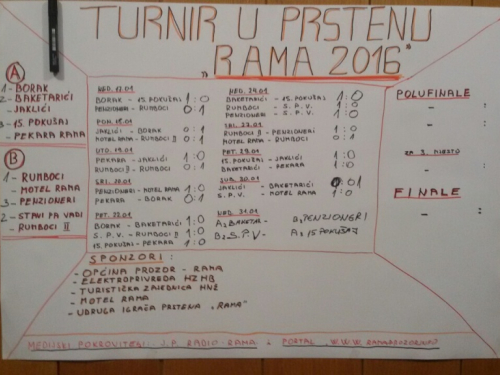 TURNIR U PRSTENU
"RAMA 2016"
A
1 - BORAK
2 - BAKETARIĆI
- JAKLIĆI
3 - 15. POKUŠAJ
- PEKARA RAMA
B
1 - RUMBOCI
- MOTEL RAMA
3 - PENZIONERI
2 - STAVI PA VADI
- RUMBOCI II
NED. 17.01
BORAK - 15. POKUŠAJ 1:0
PENZIONERI - RUMBOCI 0:1
PON. 18.01
JAKLIĆI - BORAK 0:1
MOTEL RAMA - RUMBOCI II 0:1
UTO. 19.01
PEKARA - JAKLIĆI 1:0
RUMBOCI - RUMBOCI II 1:0
SRI. 20.01
PENZIONERI - MOTEL RAMA 1:0
PEKARA - BORAK 0:1
PET. 22.01
BORAK - BAKETARIĆI 1:0
S. P. V. - RUMBOCI II 1:0
15. POKUŠAJ - PEKARA 1:0
NED. 24.01
BAKETARIĆI - 15. POKUŠAJ 1:0
RUMBOCI - S. P. V. 1:0
PENZIONERI - S. P. V. 0:1
RUMBOCI II - PENZIONERI 0:1
MOTEL RAMA - RUMBOCI 0:1
15. POKUŠAJ - JAKLIĆI 1:0
BAKETARIĆI - PEKARA 1:0
SUB. 30.01
JAKLIĆI - BAKETARIĆI 0:1
S. P. V. - MOTEL RAMA 1:0
NED. 31.01
POLUFINALE
- :
- :
ZA 3. MJESTO
- :
FINALE
- :
SPONZORI :
- OPĆINA PROZOR - RAMA
- ELEKTROPRIVREDA HZHB
- TURISTIČKA ZAJEDNICA HNŽ
- MOTEL RAMA
- UDRUGA IGRAČA PRSTENA "RAMA"
MEDIJSKI POKROVITELJ: J.P. RADIO RAMA i PORTAL